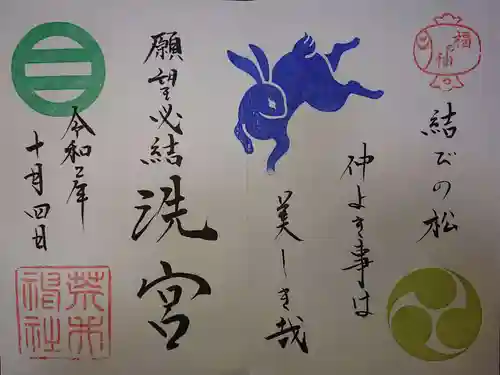 福の神
結びの松
仲よき事は
美しき哉
願望必結
洗宮
令和二年
十月四日
荒井神社